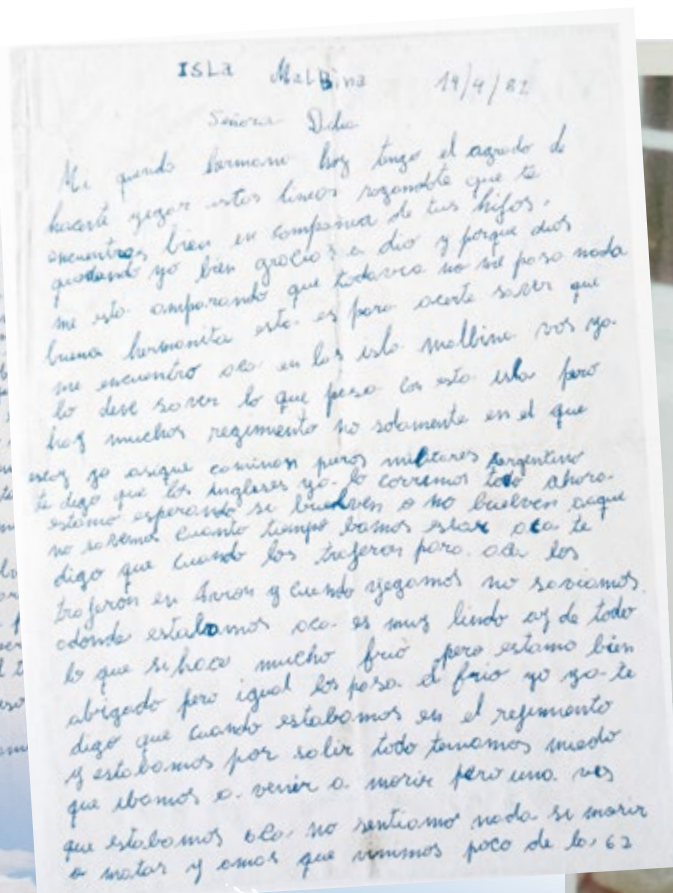 ISLa MalBina 19/4/82
Señora Delia
Mi querido hermana hoy tengo el agrado de
hacerte yegar estas lineas rogandote que te
encuentres bien en compañia de tus hijos,
quedando yo bien gracias a dio y porque dios
me esta amparando que todavia no me pasa nada
buena hermanita esta es para acerte saver que
me encuentro aca en las isla malbina vos ya
lo deve saver lo que pasa con esta isla pero
hay muchos regimiento no solamente en el que
estoy yo asique caminan puros militares Argentino
te digo que los ingleses ya lo corrimos todo ahora
estamo esperando si buelven o no buelven aque
no savemos cuanto tiempo bamos estar aca te
digo que cuando los trajeron para aca los
trajeron en Avion y cuando yegamos no saviamos
adonde estabamos aca es muy lindo ay de todo
lo que si hace mucho frio pero estamo bien
abrigado pero igual los pasa el frio yo ya te
digo que cuando estabamos en el regimiento
y estabamos por salir todo teniamos miedo
que ibamos a venir a morir pero una ves
que estabamos aca no sentiamos nada si morir
o matar y amas que vinimos poco de la 62